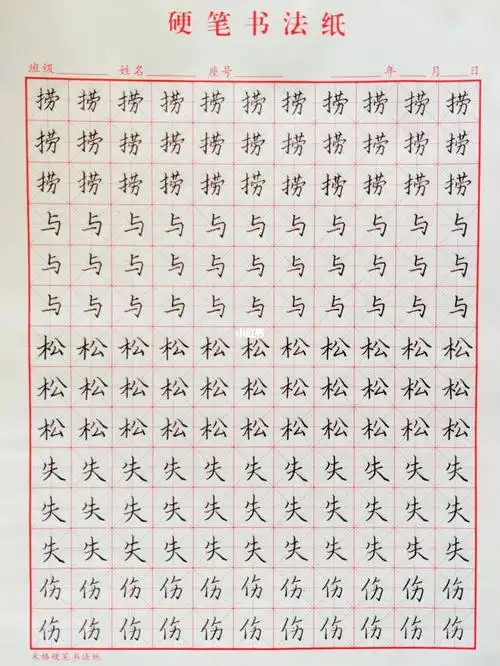 硬笔书法纸
班级 姓名 座号 年 月 日
捞捞捞捞捞捞捞捞捞捞捞
捞捞捞捞捞捞捞捞捞捞捞
捞捞捞捞捞捞捞捞捞捞捞
与与与与与与与与与与与
与与与与与与与与与与与
与与与与与与与与与与与
小红书
松松松松松松松松松松松
松松松松松松松松松松松
松松松松松松松松松松松
失失失失失失失失失失失
失失失失失失失失失失失
失失失失失失失失失失失
伤伤伤伤伤伤伤伤伤伤伤
伤伤伤伤伤伤伤伤伤伤伤
米格硬笔书法纸